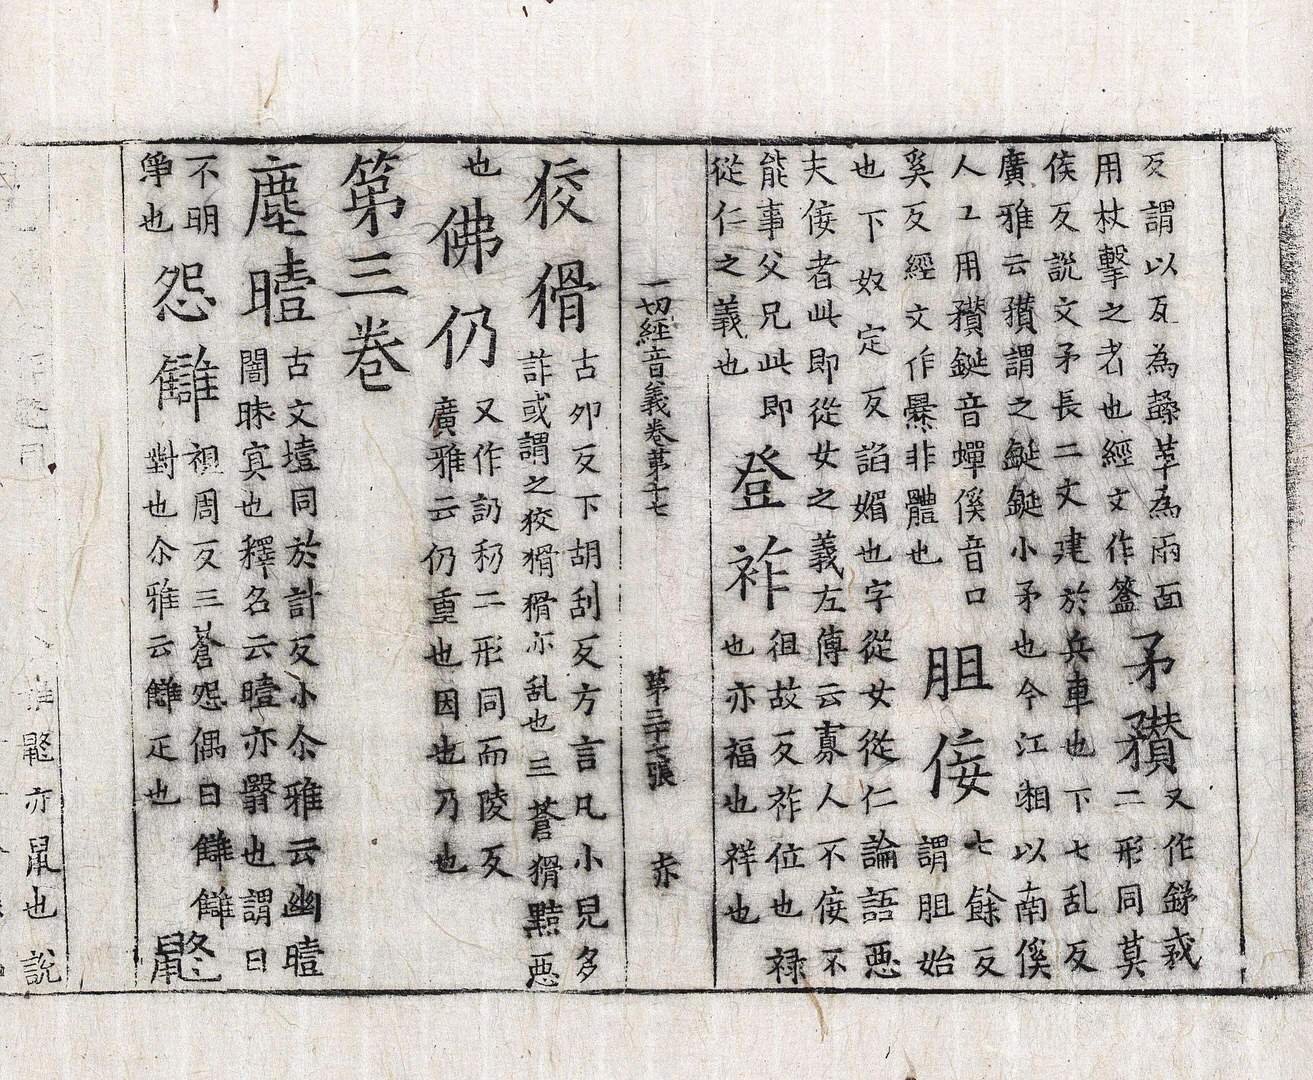 反謂以瓦為蠡草為兩面
用杖擊之者也經文作簽
矛䂎
又作鉾䂍
二形同莫
侯反說文矛長二丈建於兵車也下七乱反
廣雅云䂎謂之鋋鋋小矛也今江湘以南傒
人工用䂎鋋音蟬傒音口
奚反經文作爨非體也
胆佞
七餘反
謂胆始
也下奴定反諂媚也字從女從仁論語惡
夫佞者此即從女之義左傳云寡人不佞不
能事父兄此即
從仁之義也
登祚
徂故反祚位也祿
也亦福也祥也
一切經音義卷第十七 第二十七張 赤
狡猾
古夘反下胡刮反方言凡小兒多
詐或謂之狡猾猾亦乱也三蒼猾黠惡
也
佛仍
又作訒礽二形同而陵反
廣雅云仍重也因也乃也
第三卷
塵曀
古文壇同於計反小尒雅云幽曀
闇昧寘也釋名云曀亦翳也謂日
不明
爭也
怨讎
視周反三蒼怨偶曰讎讎
對也尒雅云讎疋也
鼨
鼨亦鼠也說